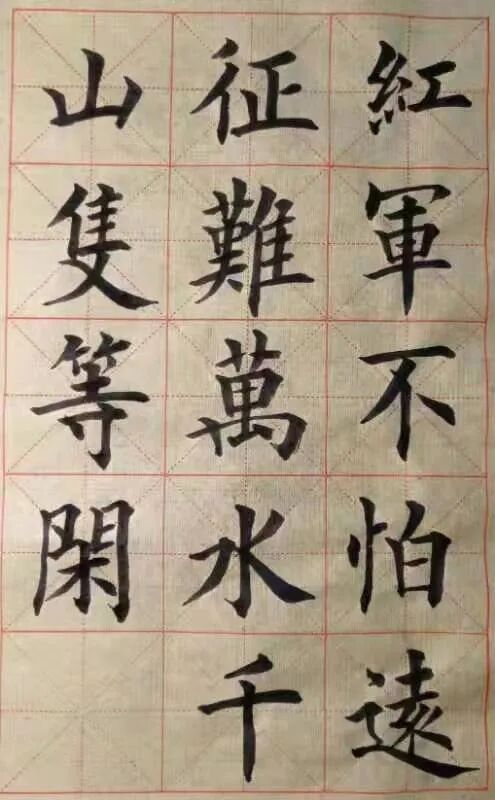 紅軍不怕遠
征難萬水千
山隻等閑